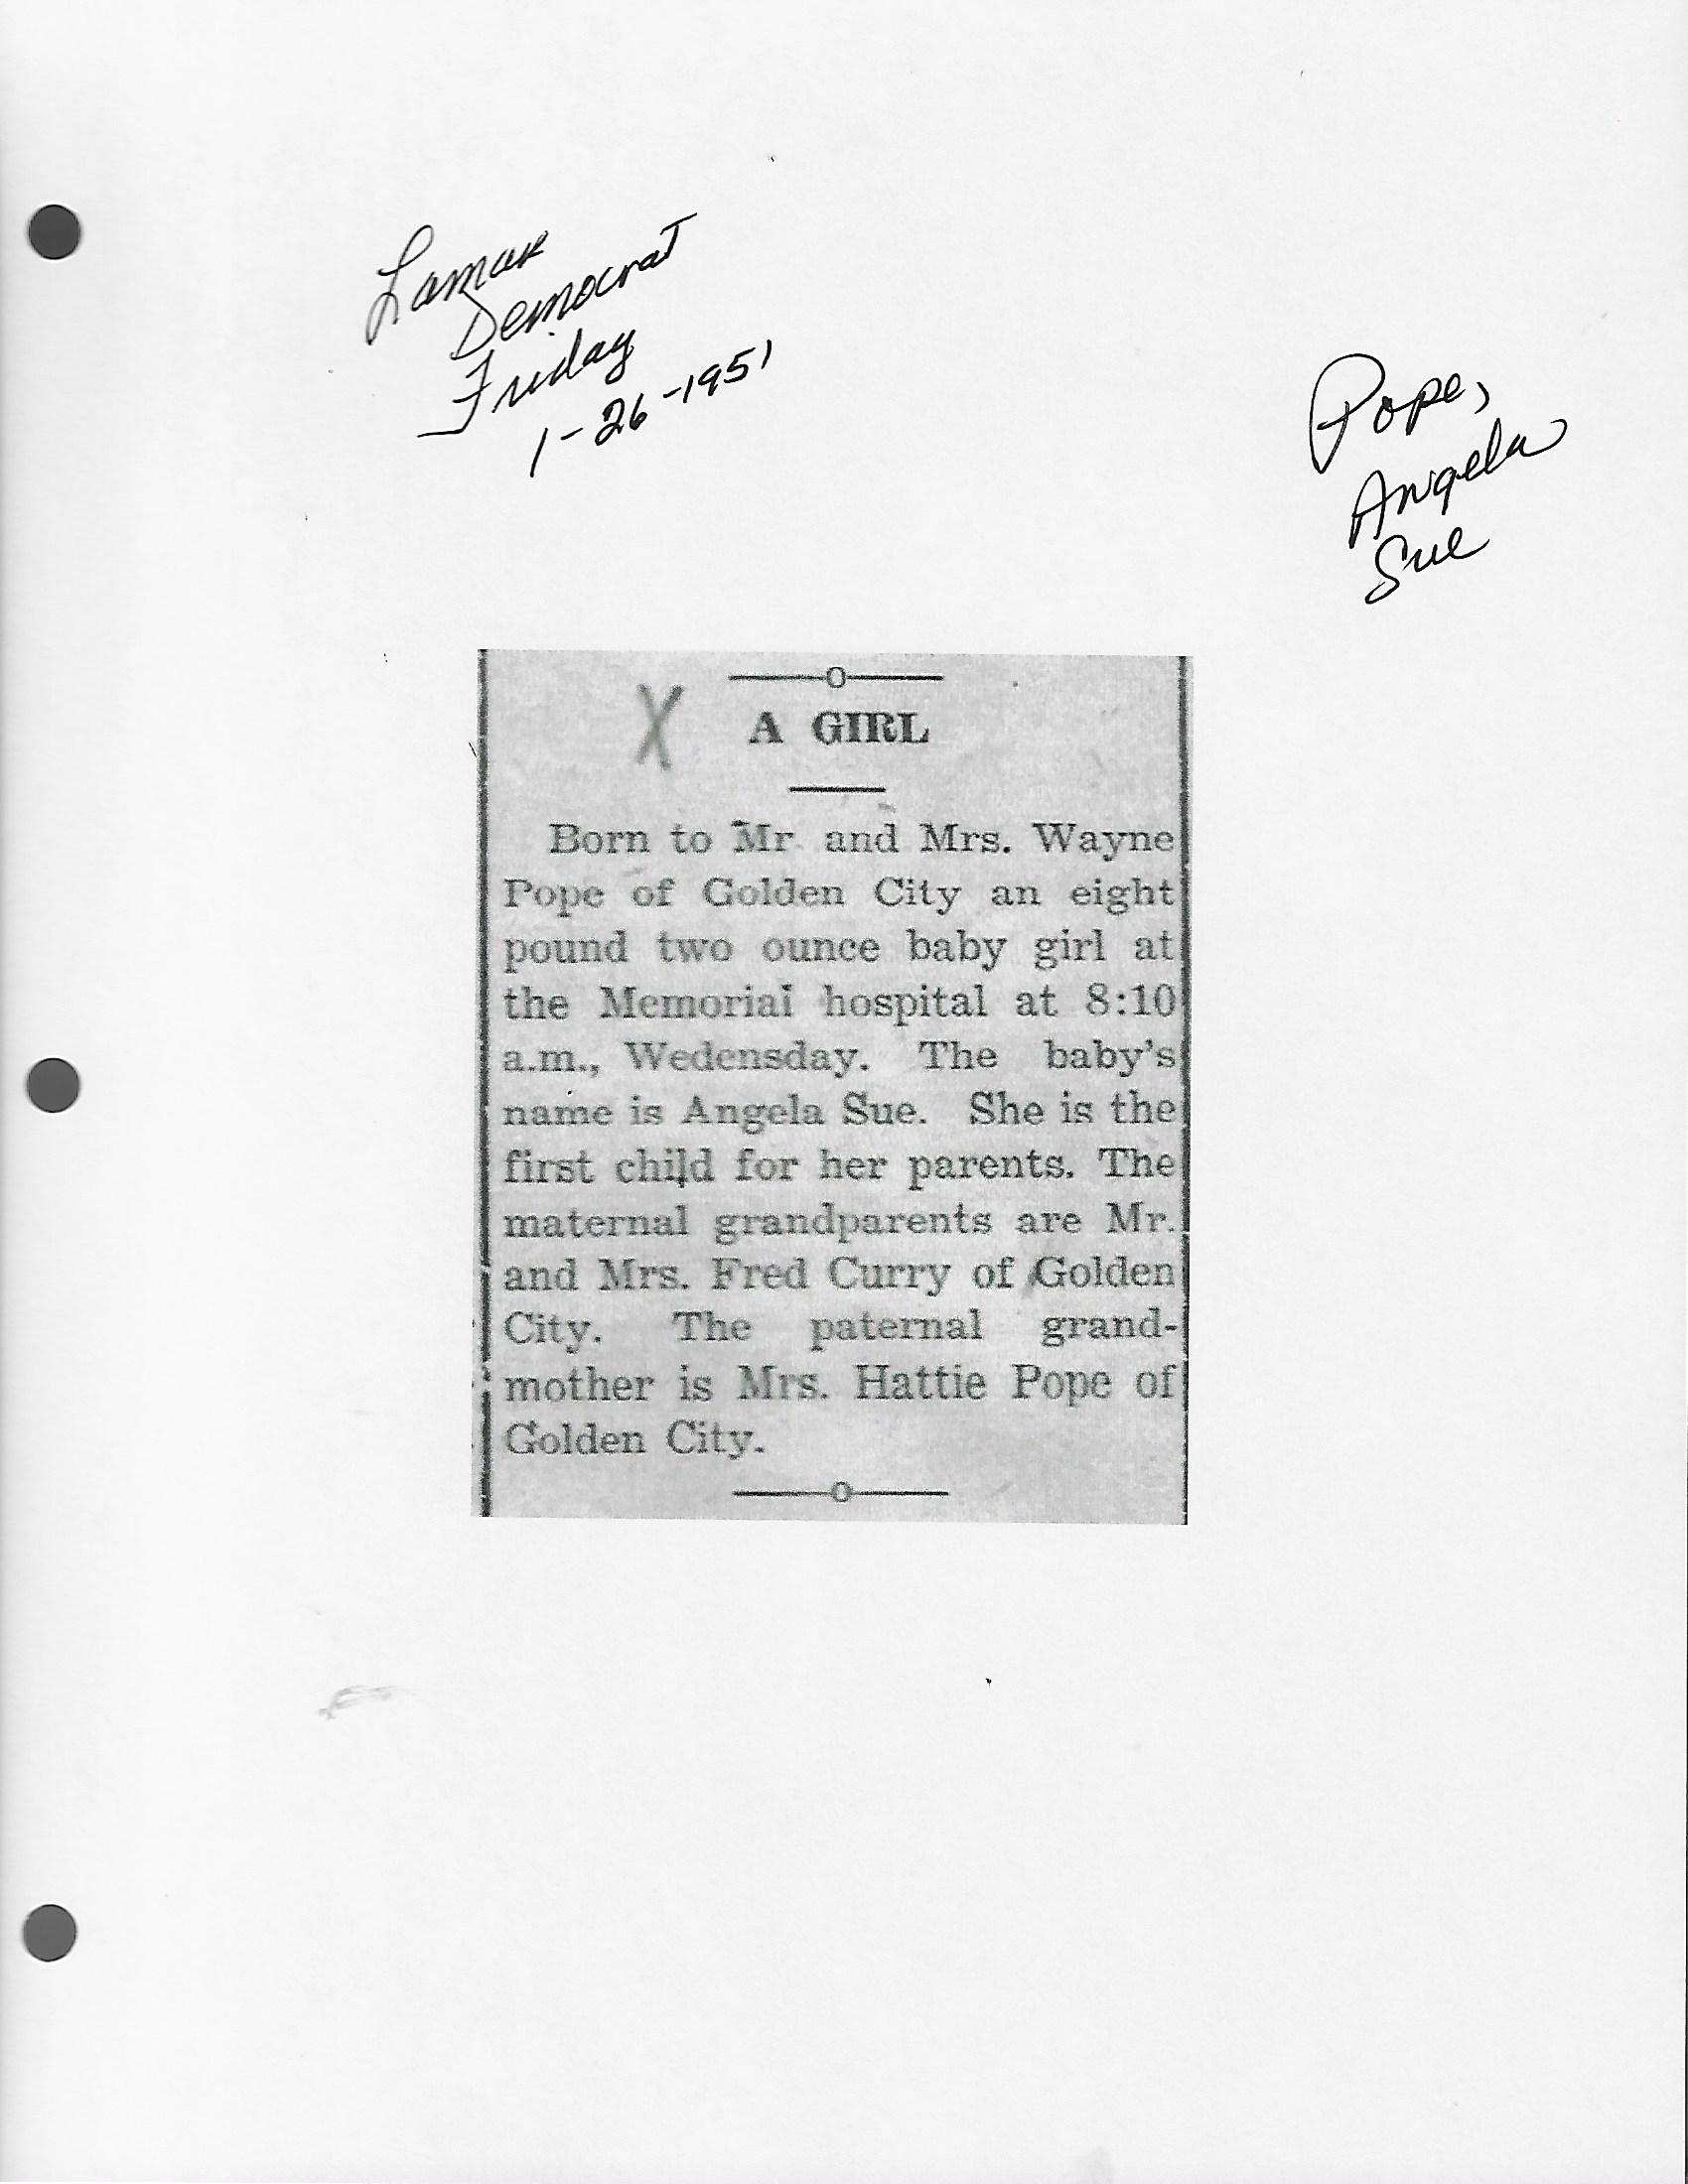 Lamar
Democrat
Friday
1-26-1951
Pope,
Angela
Sue
X
A GIRL
Born to Mr and Mrs. Wayne
Pope of Golden City an eight
pound two ounce baby girl at
the Memorial hospital at 8:10
a.m., Wedensday. The baby's
name is Angela Sue. She is the
first child for her parents. The
maternal grandparents are Mr.
and Mrs. Fred Curry of Golden
City. The paternal grand-
mother is Mrs. Hattie Pope of
Golden City.